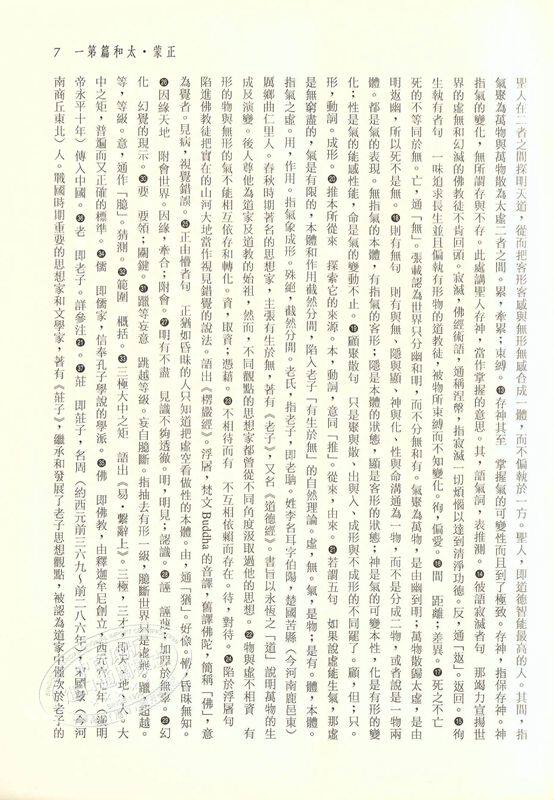 正蒙．太和篇第一 7
聖人在二者之間探明天道，從而把客形客感與無形無感合成一體，而不偏執於一方。聖人，即道德智能最高的人。其間，指
氣聚為萬物與萬物散為太虛二者之間。累，牽累；束縛。⓭存神其至　掌握氣的可變性而且到了極致。存神，指保存神。神
指氣的變化，無所謂存與不存。此處講聖人存神，當作掌握的意思。其，語氣詞，表推測。⓮彼語寂滅者句　那竭力宣揚世
界的虛無和幻滅的佛教徒不肯回頭。寂滅，佛經術語，通稱涅槃，指寂滅一切煩惱以達到清淨功德。反，通「返」。返回。⓯徇
生執有者句　一味追求長生並且偏執有形物的道教徒，被物所束縛而不知變化。徇，偏愛。⓰間　距離；差異。⓱死之不亡
死的不等同於無。亡，通「無」。張載認為世界只分幽和明，而不分無和有。氣聚為萬物，是由幽到明；萬物散歸太虛，是由
明返幽，所以死不是無。⓲則有無句　則有與無、隱與顯、神與化、性與命溝通為一物，而不是分成二物，或者說是一物兩
體。都是氣的表現。無指氣的本體，有指氣的客形；隱是本體的狀態，顯是客形的狀態；神是氣的可變本性，化是有形的變
化；性是氣的能感性能，命是氣的變動不止。⓳顧聚散句　只是聚與散、出與入、成形與不成形的不同罷了。顧，但；只。
形，動詞。成形。⓴推本所從來　探索它的來源。本，動詞，意同「推」。從來，由來。㉑若謂五句　如果說虛能生氣，那虛
是無窮盡的，氣是有限的，本體和作用截然分開，陷入老子「有生於無」的自然理論。虛，無。氣，是物；是有。體，本體。
指氣之虛。用，作用。指氣象成形。殊絕，截然分開。老氏，指老子，即老聃。姓李名耳字伯陽，楚國苦縣（今河南鹿邑東）
厲鄉曲仁里人。春秋時期著名的思想家，主張有生於無，著有《老子》，又名《道德經》。書旨以永恆之「道」說明萬物的生
成及演變。後人尊他為道家及道教的始祖，然而，不同觀點的思想家都曾從不同角度汲取過他的思想。㉒物與虛不相資　有
形的物與無形的氣不能相互依存和轉化。資，取資；憑藉。㉓不相待而有　不互相依賴而存在。待，對待。㉔陷於浮屠句
陷進佛教徒把實在的山河大地當作視見錯覺的說法。語出《楞嚴經》。浮屠，梵文Buddha的音譯，舊譯佛陀，簡稱「佛」，意
為覺者。見病，視覺錯誤。㉕正由懵者句　正猶如昏昧的人只知道把虛空看做性的本體。由，通「猶」。好像。懵，昏昧無知。
㉖因緣天地　附會世界。因緣，牽合；附會。㉗明有不盡　見識不夠透徹。明，明見；認識。㉘誣　誣衊；加罪於無辜。㉙幻
化　幻覺的現示。㉚要　要領；關鍵。㉛躐等妄意　跳越等級。妄自臆斷。指抽去有形一級，臆斷世界只是虛無。躐，超越。
等，等級。意，通作「臆」。猜測。㉜範圍　概括。㉝三極大中之矩　語出《易．繫辭上》。三極，三才，即天、地、人。大
中之矩，普遍而又正確的標準。㉞儒　即儒家，信奉孔子學說的學派。㉟佛　即佛教，由釋迦牟尼創立，西元六七年（東漢明
帝永平十年）傳入中國。㊱老　即老子。詳參注㉑。㊲莊　即莊子，名周（約西元前三六九～前二八六年），宋國蒙（今河
南商丘東北）人。戰國時期重要的思想家和文學家，著有《莊子》，繼承和發展了老子思想觀點，被認為道家中僅次於老子的